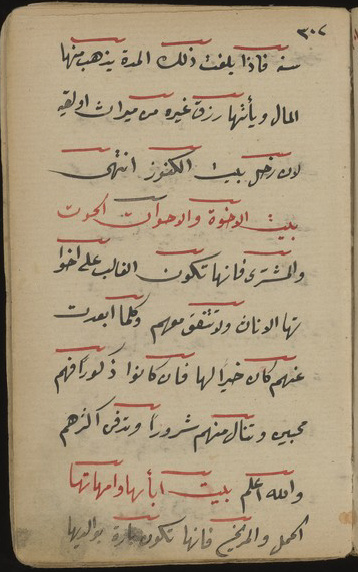 ٣٠٧
سنه فاذا بلغت ذلك المدة يذهب منها
المال ويأتيها رزق غيره من ميراث او لقيه
لان زحل بيت الكنوز انتهى
بيت الاخوة والاخوات الحوت
والمشترى فانها تكون الغالب على اخوا
تها الاناث ولا تتفق معهم وكلما ابعدت
عنهم كان خيرا لها فان كانوا ذكورا فهم
محبين وتنال منهم شرورا وتدفن اكثرهم
والله اعلم بيت ابأيها وامهاتها
الحمل والمريخ فانها تكون بارة بوالديها